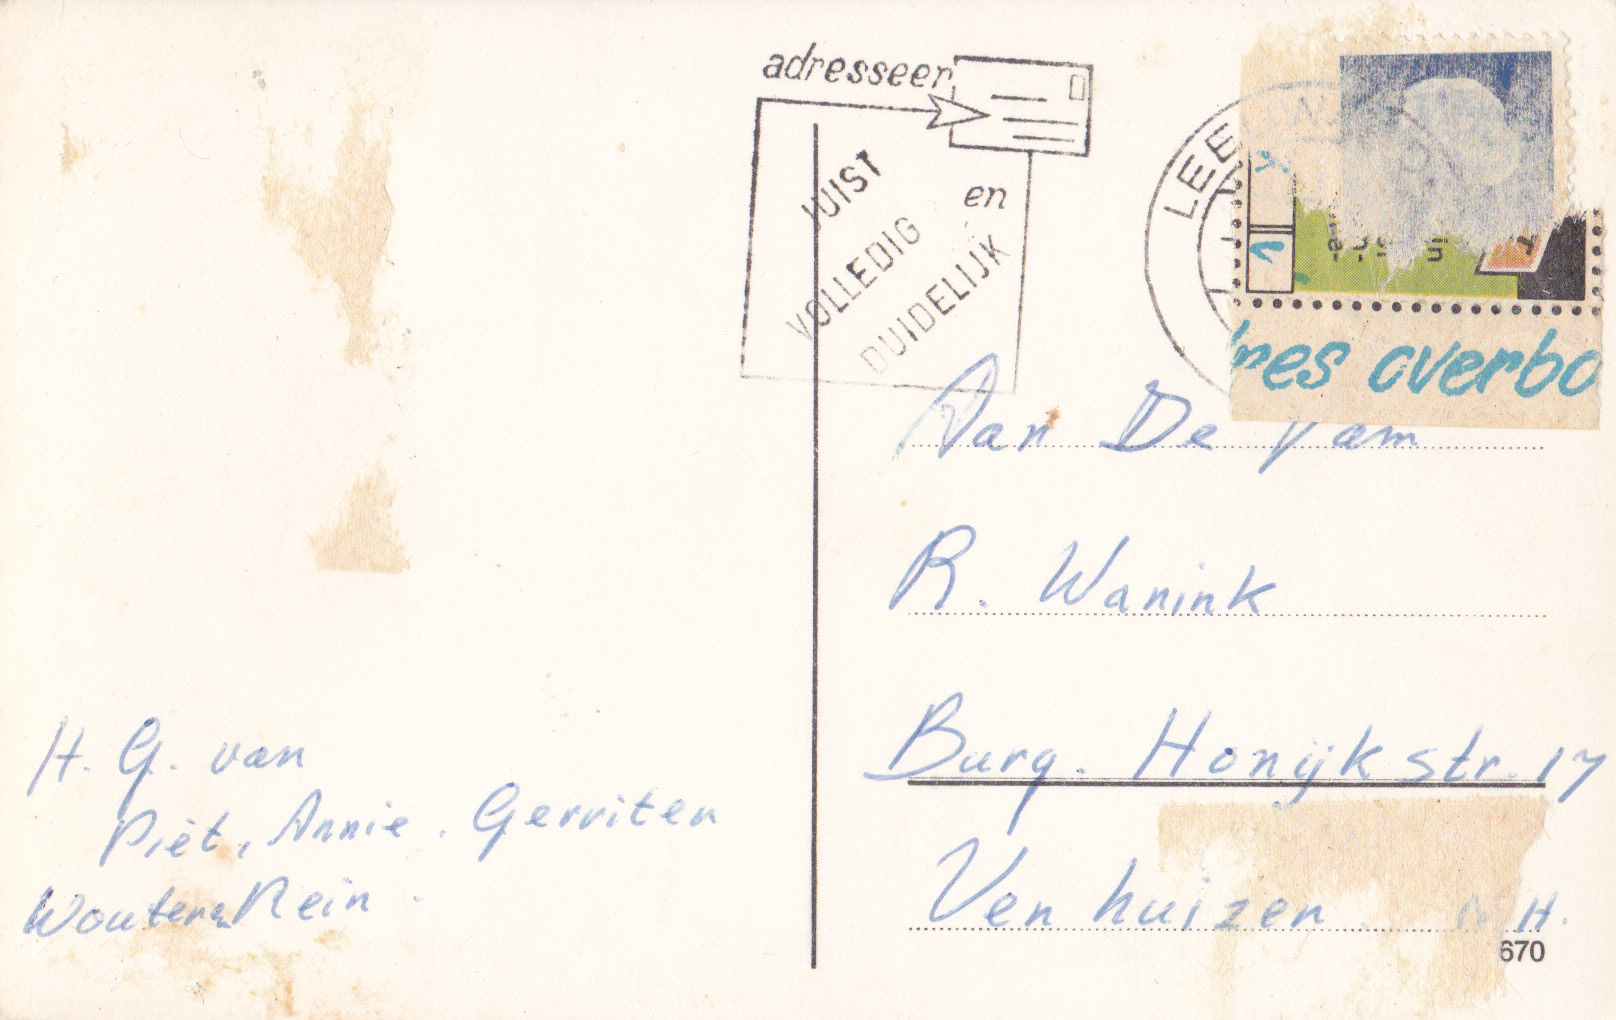 adresseer
JUIST
en
VOLLEDIG
DUIDELIJK
LEEUW
res overbo
Aan De Fam
R. Wanink
Burg. Honijk str. 17
Venhuizen. N.H.
670
H. G. van
Piet, Annie. Gerriten
Wouter & Rein.